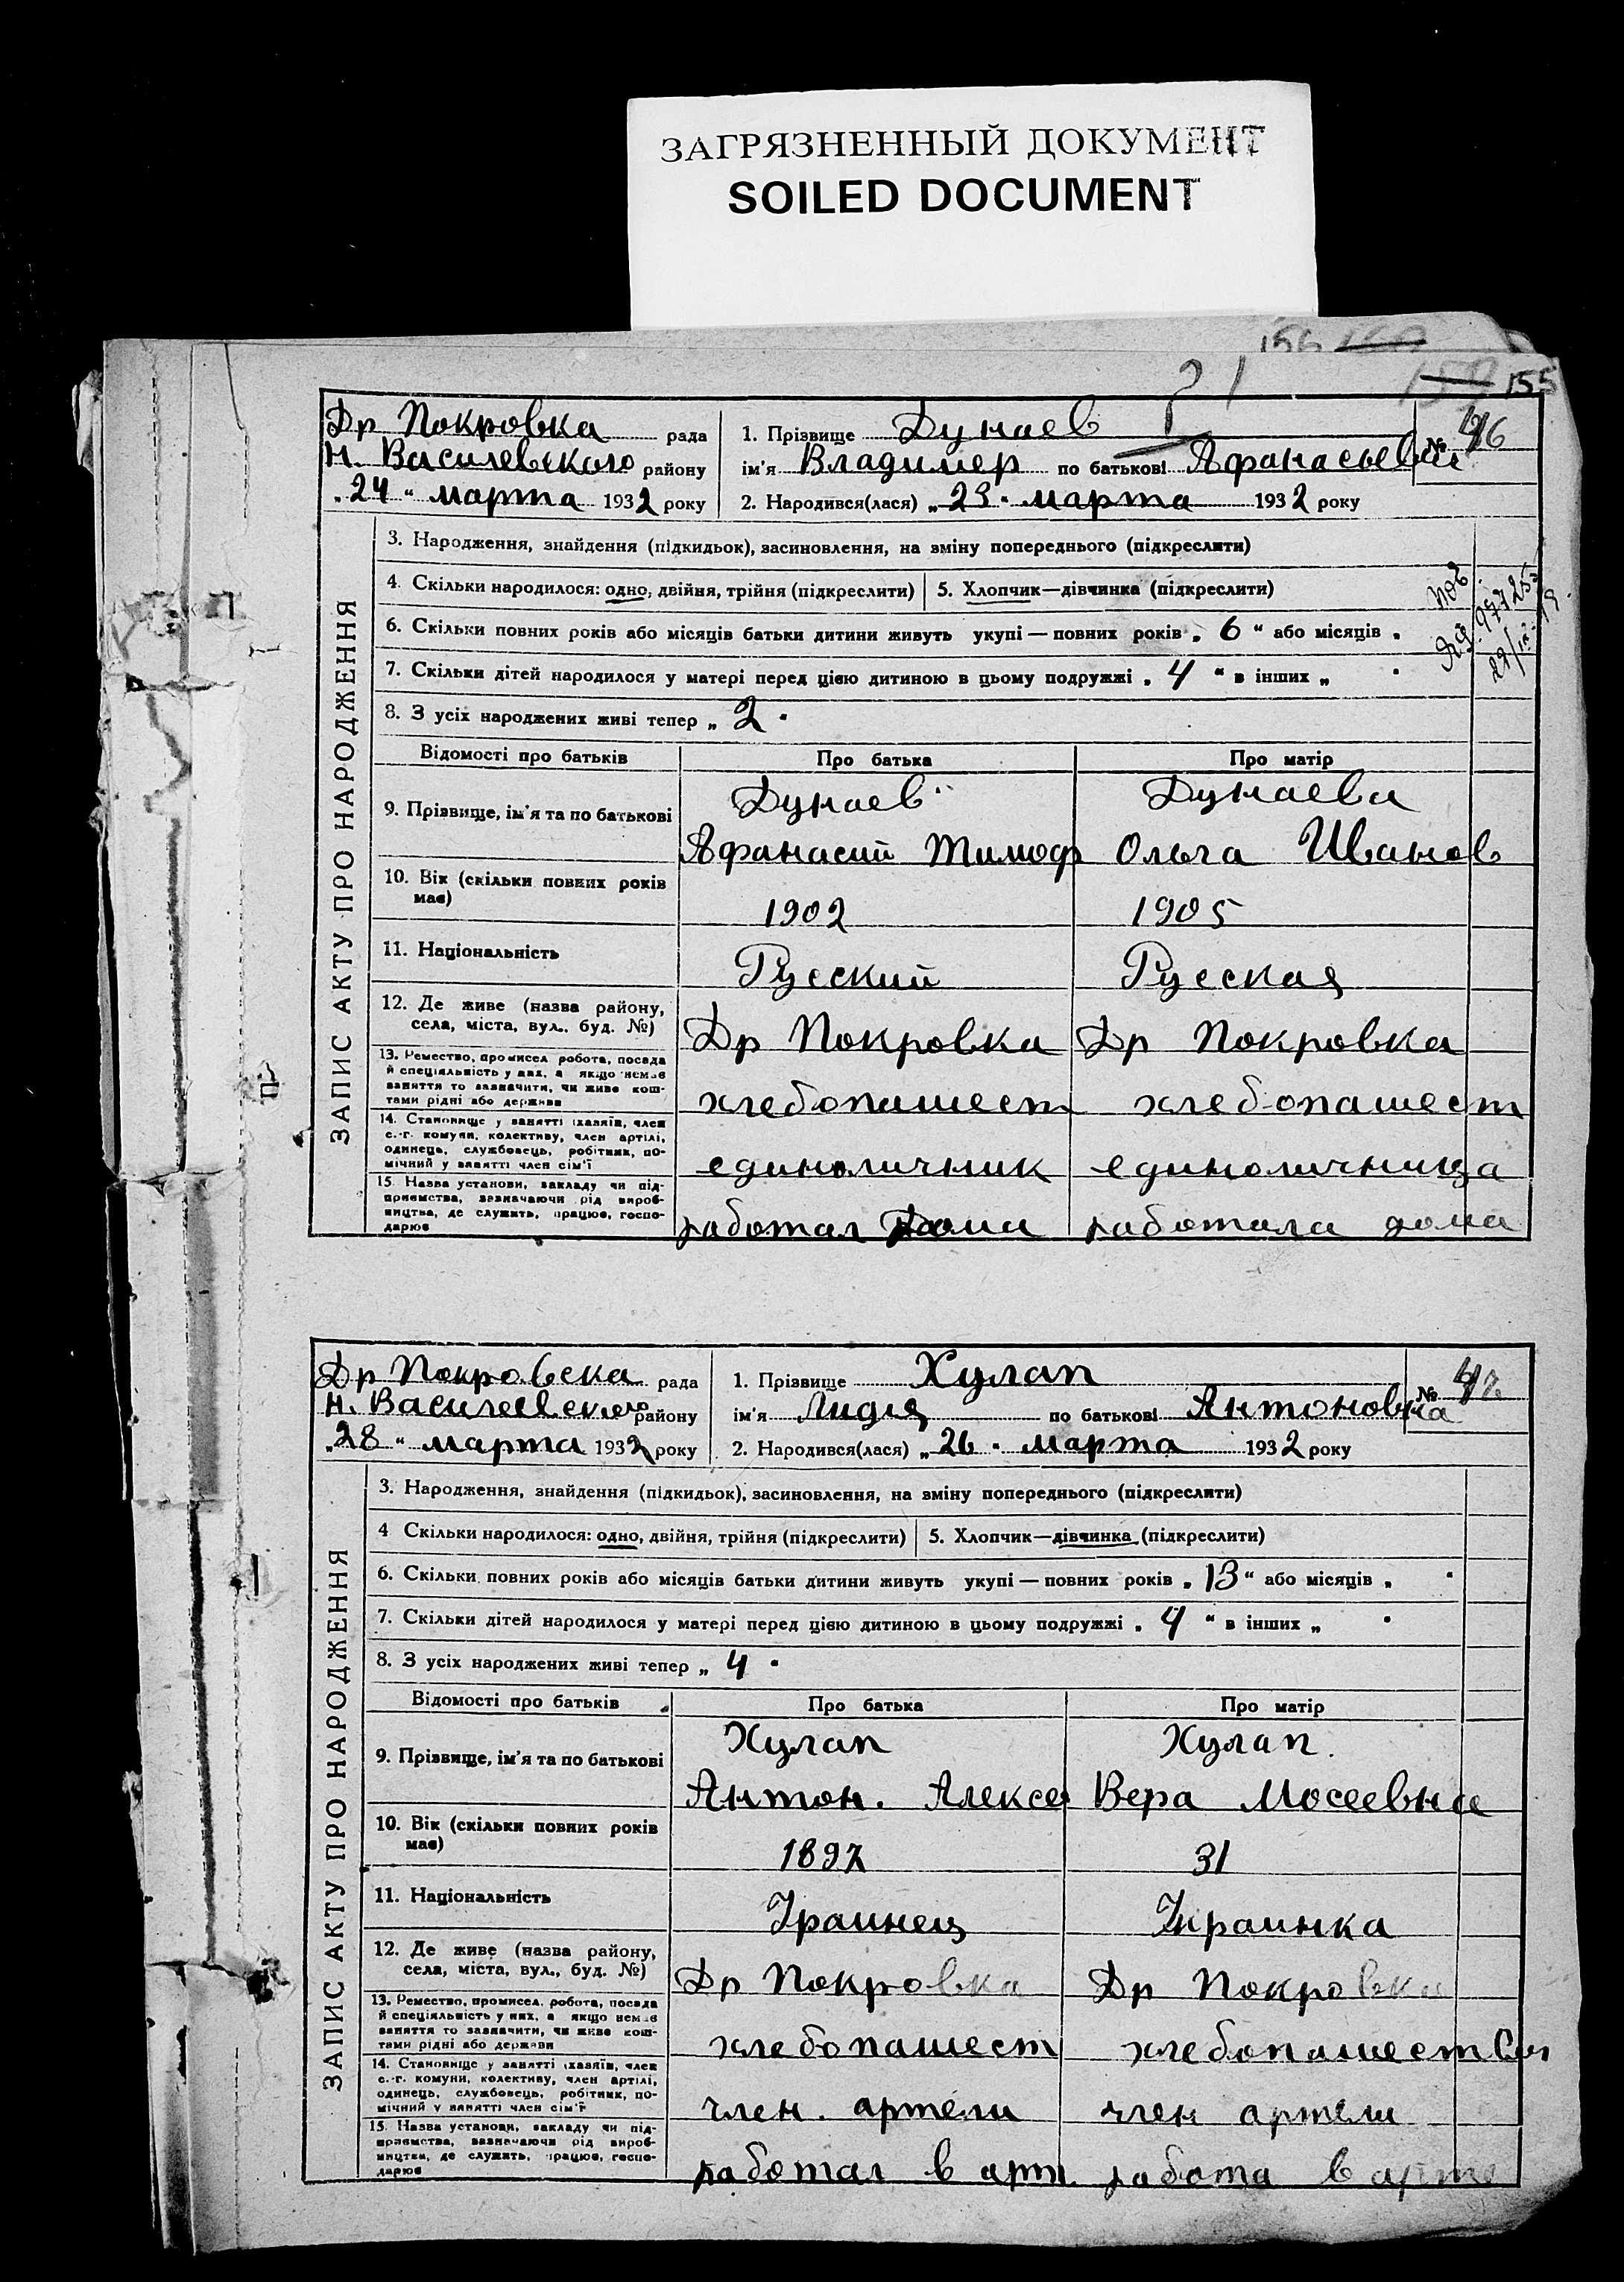 ЗАГРЯЗНЕННЫЙ ДОКУМЕНТ
SOILED DOCUMENT
156
155
Др Покровка рада
Н. Василевского району
„24“ марта 1932 року
1. Прізвище Дунаев
ім'я Владимер по батькові Афанасьевич
№ 46
2. Народився(лася) „23“ марта 1932 року
ЗАПИС АКТУ ПРО НАРОДЖЕННЯ
3. Народження, знайдення (підкидьок), засиновлення, на зміну попереднього (підкреслити)
4. Скільки народилося: одно, двійня, трійня (підкреслити) 5. Хлопчик—дівчинка (підкреслити)
6. Скільки повних років або місяців батьки дитини живуть укупі — повних років „6“ або місяців „
7. Скільки дітей народилося у матері перед цією дитиною в цьому подружжі „4“ в інших „ “
8. З усіх народжених живі тепер „2“
Відомості про батьків Про батька Про матір
9. Прізвище, ім'я та по батькові
Дунаев Дунаева
Афанасий Тимоф Ольга Иванов
10. Вік (скільки повних років має)
1902 1905
11. Національність
Русский Русская
12. Де живе (назва району, села, міста, вул., буд. №)
Др Покровка Др Покровка
13. Ремество, промисел робота, посада й спеціяльність у них, а якщо немає заняття то зазначити, чи живе коштами рідні або держави
хлебопашест хлебопашест
14. Становище у занятті (хазяїн, член с.-г. комуни, колективу, член артілі, одинець, службовець, робітник, помічний у занятті член сім'ї
единоличник единоличница
15. Назва установи, закладу чи підприємства, зазначаючи рід виробництва, де служить, працює, господарює
работал дома работала дома
Др Покровска рада
Н. Василевского району
„28“ марта 1932 року
1. Прізвище Хулап
ім'я Лидия по батькові Антоновна
№ 47
2. Народився(лася) „26“ марта 1932 року
ЗАПИС АКТУ ПРО НАРОДЖЕННЯ
3. Народження, знайдення (підкидьок), засиновлення, на зміну попереднього (підкреслити)
4 Скільки народилося: одно, двійня, трійня (підкреслити) 5. Хлопчик—дівчинка (підкреслити)
6. Скільки повних років або місяців батьки дитини живуть укупі — повних років „13“ або місяців „ “
7. Скільки дітей народилося у матері перед цією дитиною в цьому подружжі „4“ в інших „ “
8. З усіх народжених живі тепер „4“
Відомості про батьків Про батька Про матір
9. Прізвище, ім'я та по батькові
Хулап Хулап.
Антон. Алексе Вера Мосеевна
10. Вік (скільки повних років має)
1897 31
11. Національність
Украинец Украинка
12. Де живе (назва району, села, міста, вул., буд. №)
Др Покровка Др Покровка
13. Ремество, промисел. робота, посада й спеціяльність у них, а якщо немає заняття то зазначити, чи живе коштами рідні або держави
хлебопашест хлебопашест
14. Становище у занятті (хазяїн, член с.-г. комуни, колективу, член артілі, одинець, службовець, робітник, помічний у занятті член сім'ї
член. артели член артели
15. Назва установи, закладу чи підприємства, зазначаючи рід виробництва, де служить, працює, господарює
работал в арт. работа в арте